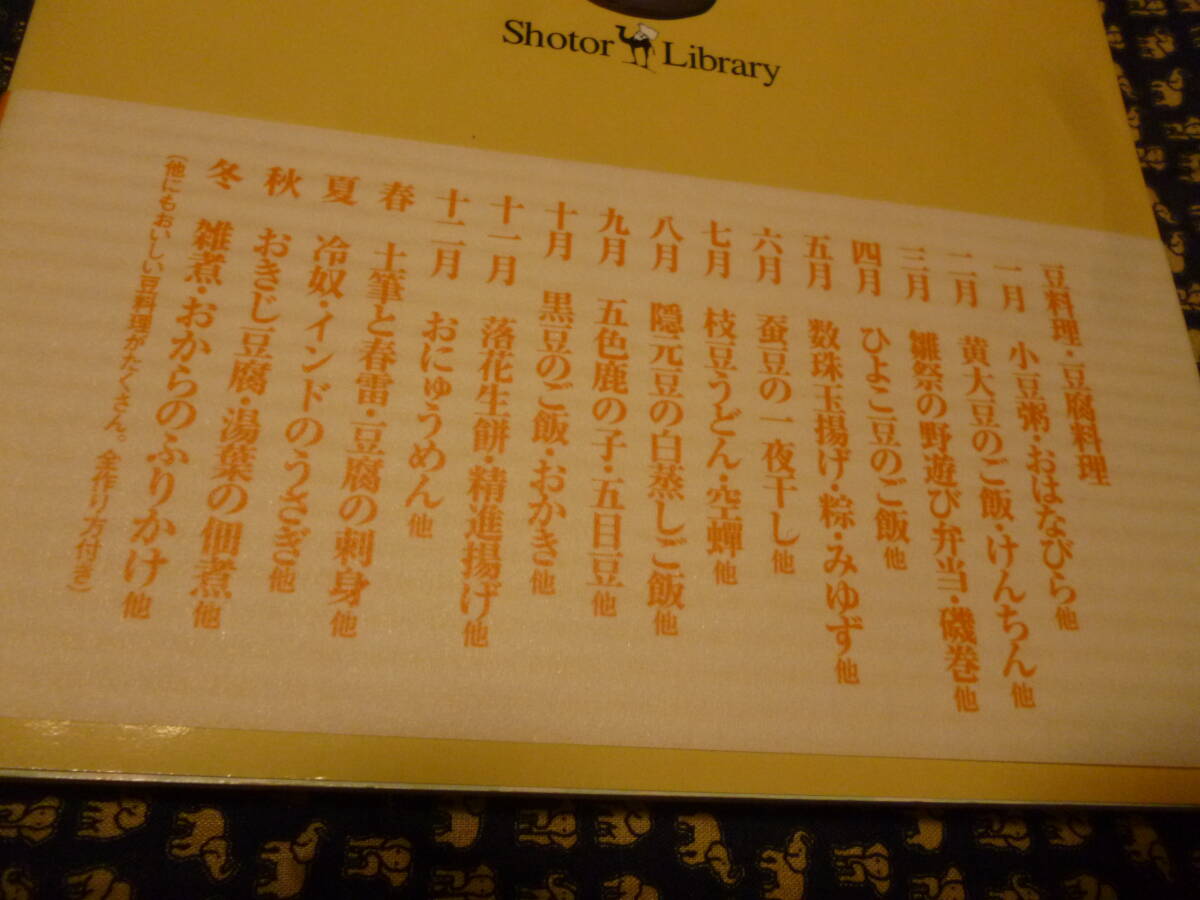 Shotor Library
豆料理・豆腐料理
一月 小豆粥・おはなびら他
二月 黄大豆のご飯・けんちん他
三月 雛祭の野遊び弁当・磯巻他
四月 ひよこ豆のご飯他
五月 数珠玉揚げ・粽・みゆず他
六月 蚕豆の一夜干し他
七月 枝豆うどん・空蟬他
八月 隠元豆の白蒸しご飯他
九月 五色鹿の子・五目豆他
十月 黒豆のご飯・おかき他
十一月 落花生餅・精進揚げ他
十二月 おにゅうめん他
春 土筆と春雷・豆腐の刺身他
夏 冷奴・インドのうさぎ他
秋 おきじ豆腐・湯葉の佃煮他
冬 雑煮・おからのふりかけ他
(他にもおいしい豆料理がたくさん。全作り方付き)